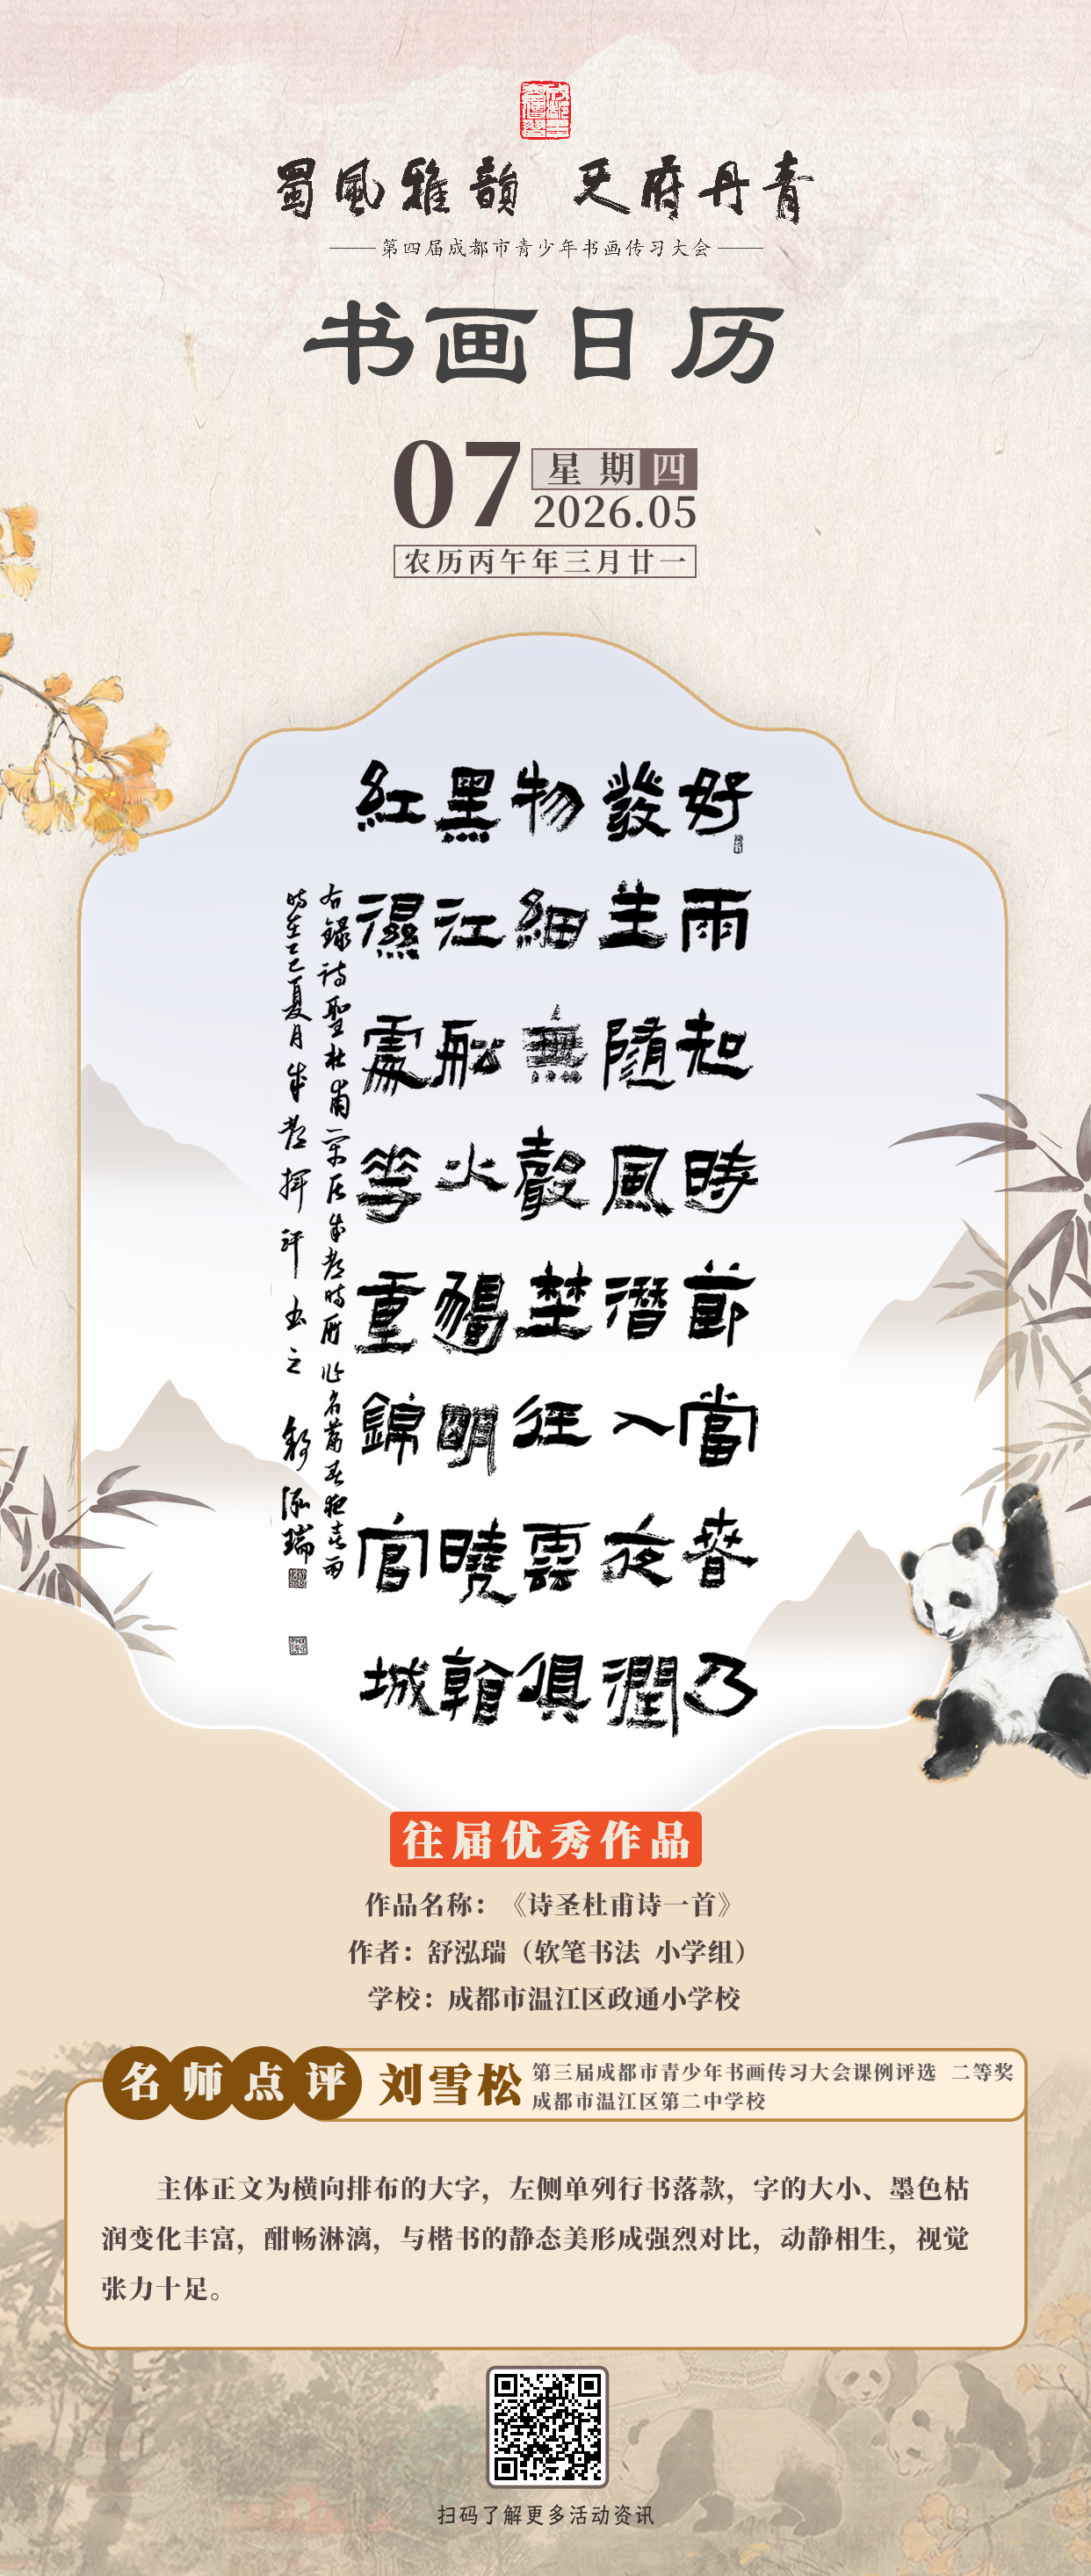 蜀風雅韻 天府丹青
第四届成都市青少年书画传习大会
书画日历
07
星期四
2026.05
农历丙午年三月廿一
好雨知時節當春乃
發生隨風潛入夜潤
物細無聲埜徑雲俱
黑江舩火獨明曉看
紅濕處花重錦官城
右錄詩聖杜甫定居成都時所作名篇春夜喜雨
時在乙巳夏月成都揮汗书之 舒泓瑞
往届优秀作品
作品名称：《诗圣杜甫诗一首》
作者：舒泓瑞（软笔书法 小学组）
学校：成都市温江区政通小学校
名师点评
刘雪松
第三届成都市青少年书画传习大会课例评选 二等奖
成都市温江区第二中学校
主体正文为横向排布的大字，左侧单列行书落款，字的大小、墨色枯
润变化丰富，酣畅淋漓，与楷书的静态美形成强烈对比，动静相生，视觉
张力十足。
扫码了解更多活动资讯